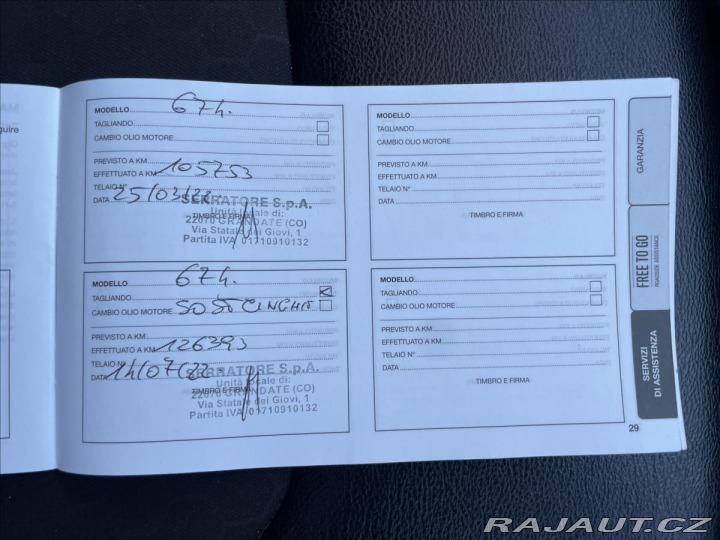 MODELLO 674.
TAGLIANDO
CAMBIO OLIO MOTORE
PREVISTO A KM
EFFETTUATO A KM 105753
TELAIO N°
DATA 25/03/22
TIMBRO E FIRMA
SERRATORE S.p.A.
Unità locale di:
22070 GRANDATE (CO)
Via Statale dei Giovi, 1
Partita IVA 01710910132
MODELLO 674.
TAGLIANDO
CAMBIO OLIO MOTORE
PREVISTO A KM
EFFETTUATO A KM 126393
TELAIO N°
DATA 14/07/22
TIMBRO E FIRMA
SERRATORE S.p.A.
Unità locale di:
22070 GRANDATE (CO)
Via Statale dei Giovi, 1
Partita IVA 01710910132
MODELLO
TAGLIANDO
CAMBIO OLIO MOTORE
PREVISTO A KM
EFFETTUATO A KM
TELAIO N°
DATA
TIMBRO E FIRMA
MODELLO
TAGLIANDO
CAMBIO OLIO MOTORE
PREVISTO A KM
EFFETTUATO A KM
TELAIO N°
DATA
TIMBRO E FIRMA
GARANZIA
FREE TO GO
ROADSIDE ASSISTANCE
SERVIZI
DI ASSISTENZA
29
RAJAUT.CZ